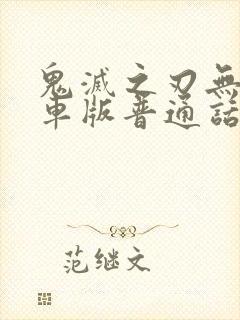 鬼滅之刃無
車版普通話
范继文